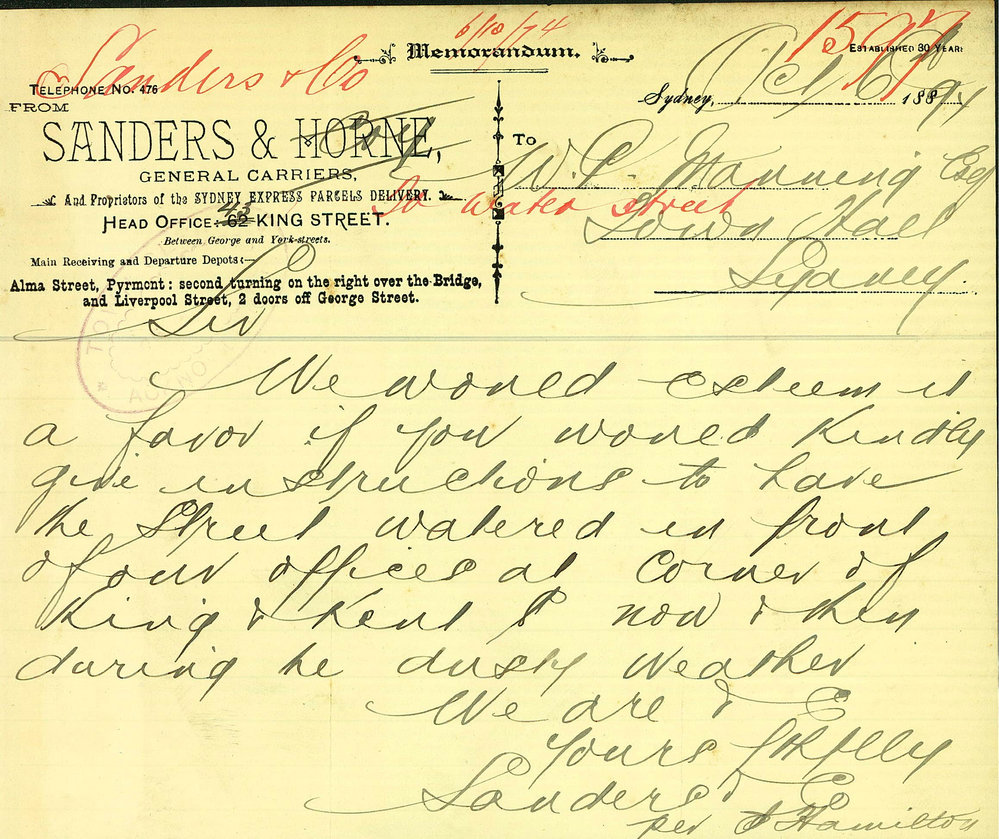 6/10/94
Memorandum.
1597
ESTABLISHED 30 YEARS
Sanders & Co
TELEPHONE No. 476
FROM
SANDERS & HORNE,
GENERAL CARRIERS,
And Proprietors of the SYDNEY EXPRESS PARCELS DELIVERY.
HEAD OFFICE: 62 KING STREET.
Between George and York-streets.
Main Receiving and Departure Depots:—
Alma Street, Pyrmont: second turning on the right over the Bridge,
and Liverpool Street, 2 doors off George Street.
Sydney, Oct 6 188
To W. P. Manning Esq
To water street
Town Hall
Sydney.
Sir
We would esteem it
a favor if you would kindly
give instructions to have
the street watered in front
of our offices at corner of
King & Kent St now & then
during the dusty weather
We are &
Yours
Sanders & Co
per Hamilton